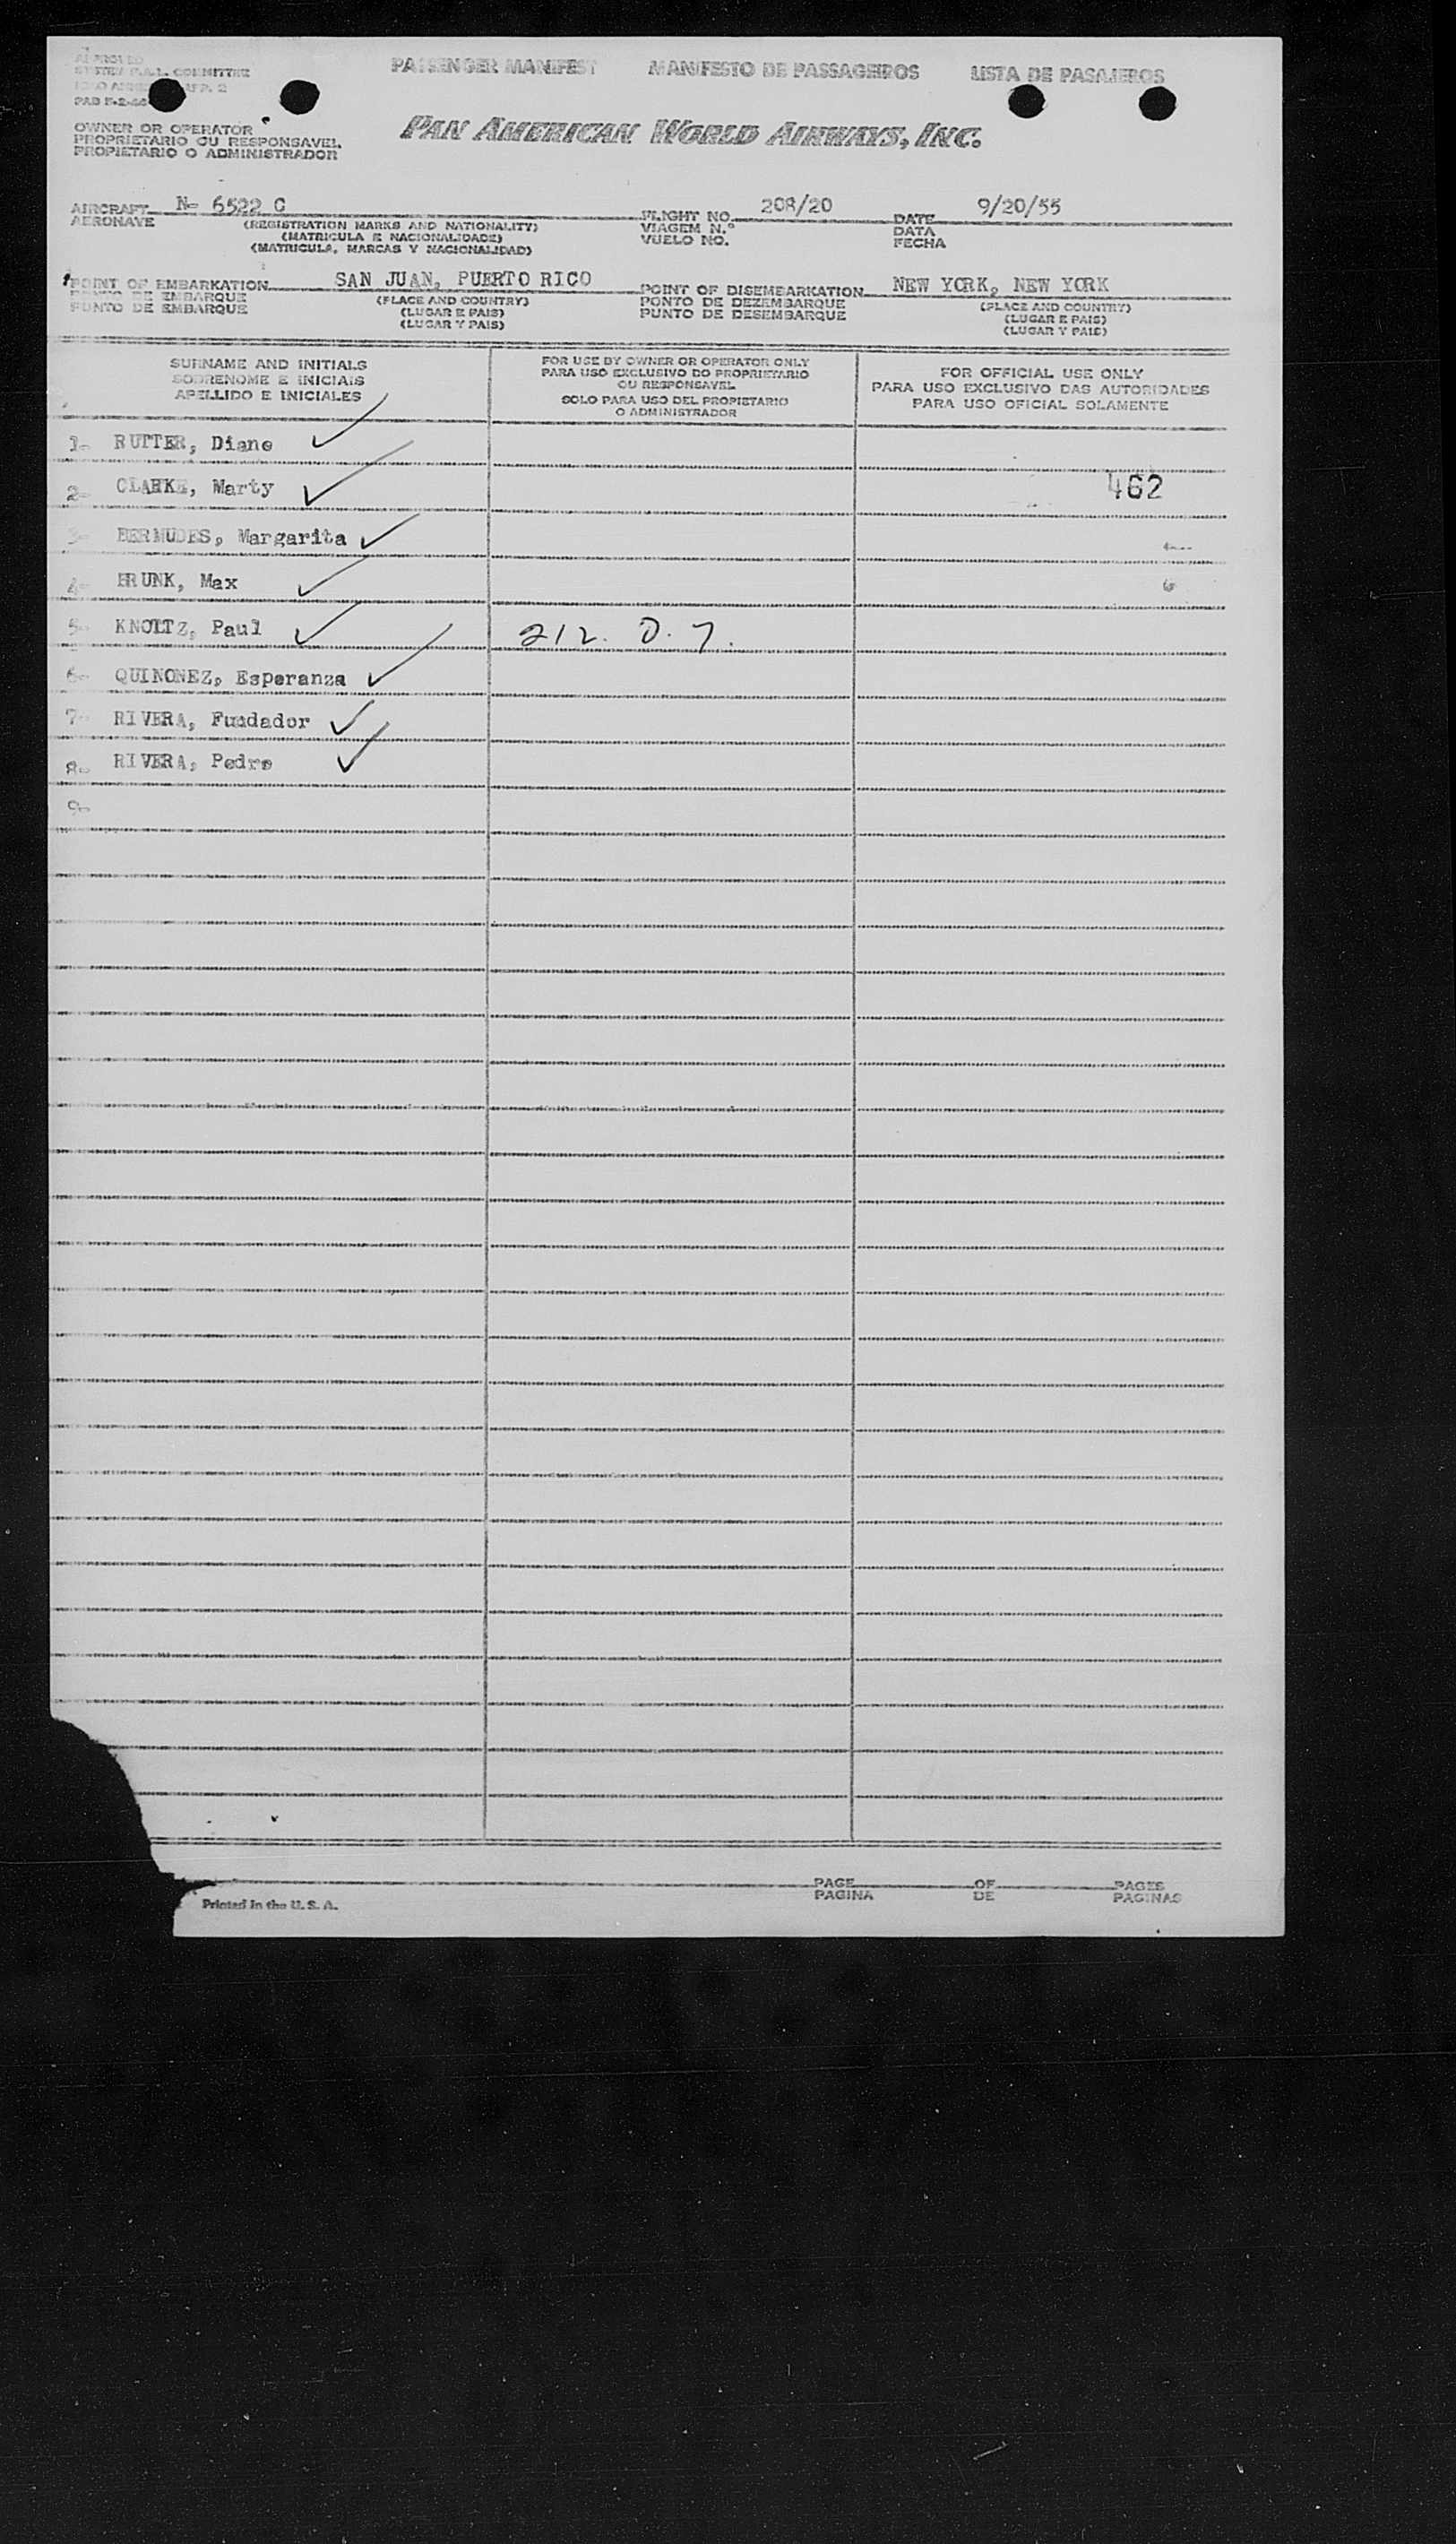 APPROVED
SYSTEM P.A.L. COMMITTEE
PAD F-2-44
PASSENGER MANIFEST MANIFESTO DE PASSAGEIROS LISTA DE PASAJEROS
OWNER OR OPERATOR
PROPRIETARIO OU RESPONSAVEL
PROPIETARIO O ADMINISTRADOR
PAN AMERICAN WORLD AIRWAYS, INC.
AIRCRAFT N- 6522 C FLIGHT NO. 208/20 DATE 9/20/55
AERONAVE (REGISTRATION MARKS AND NATIONALITY) VIAGEM N.º DATA
(MATRICULA E NACIONALIDADE) VUELO NO. FECHA
(MATRICULA, MARCAS Y NACIONALIDAD)
POINT OF EMBARKATION SAN JUAN, PUERTO RICO POINT OF DISEMBARKATION NEW YORK, NEW YORK
PONTO DE EMBARQUE (PLACE AND COUNTRY) PONTO DE DEZEMBARQUE (PLACE AND COUNTRY)
PUNTO DE EMBARQUE (LUGAR E PAIS) PUNTO DE DESEMBARQUE (LUGAR E PAIS)
(LUGAR Y PAIS) (LUGAR Y PAIS)
SURNAME AND INITIALS
SOBRENOME E INICIAIS
APELLIDO E INICIALES
FOR USE BY OWNER OR OPERATOR ONLY
PARA USO EXCLUSIVO DO PROPRIETARIO
OU RESPONSAVEL
SOLO PARA USO DEL PROPIETARIO
O ADMINISTRADOR
FOR OFFICIAL USE ONLY
PARA USO EXCLUSIVO DAS AUTORIDADES
PARA USO OFICIAL SOLAMENTE
1- RUTTER, Diane
2- CLARKE, Marty 462
3- BERMUDES, Margarita
4- BRUNK, Max
5- KNOLTZ, Paul 212. D. 7.
6- QUINONEZ, Esperanza
7- RIVERA, Fundador
8- RIVERA, Pedro
9-
PAGE OF PAGES
PAGINA DE PAGINAS
Printed in the U. S. A.